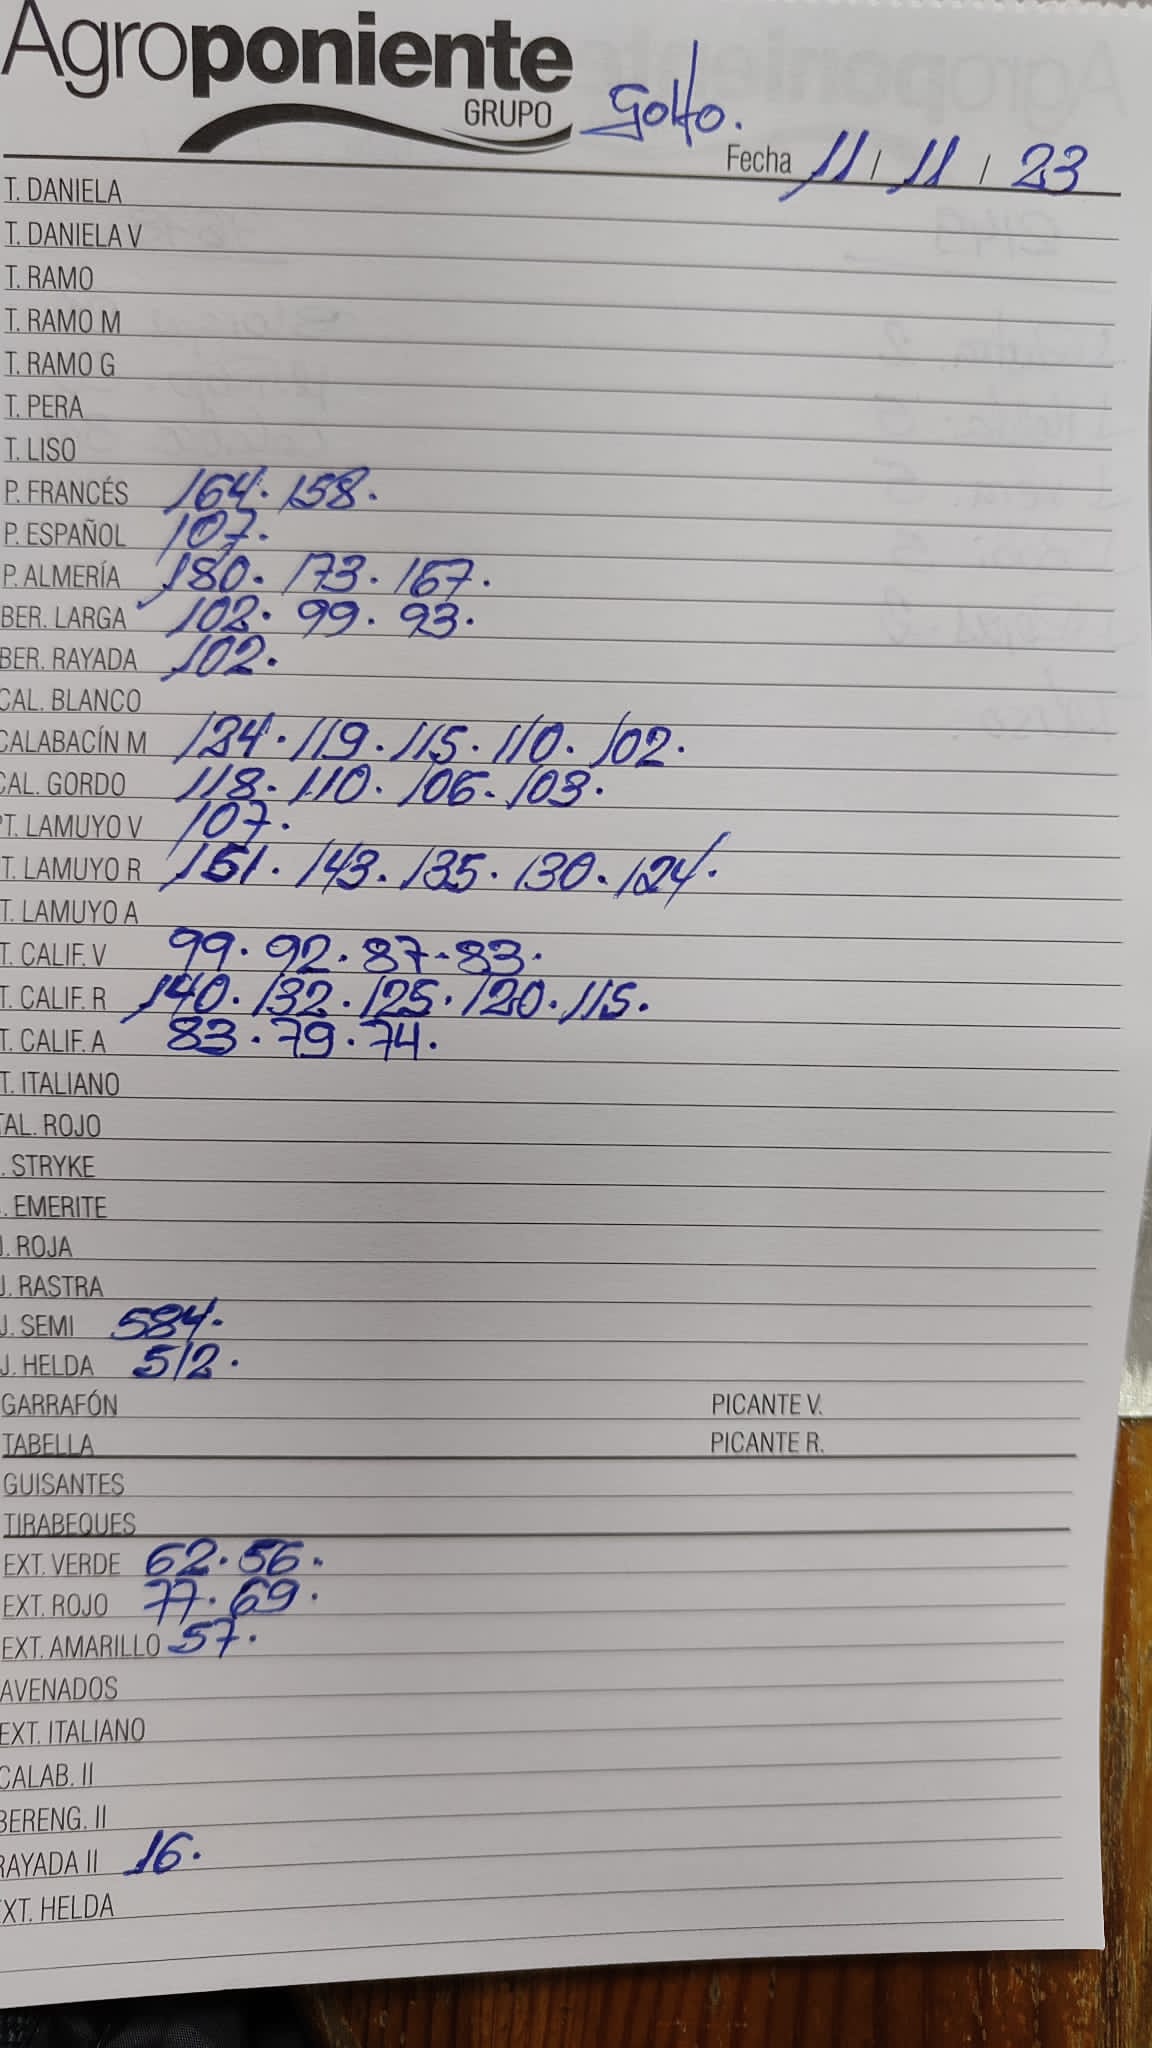 Agroponiente
GRUPO
Golfo.
Fecha 11 / 11 / 23
T. DANIELA
T. DANIELA V
T. RAMO
T. RAMO M
T. RAMO G
T. PERA
T. LISO
P. FRANCÉS 164. 158.
P. ESPAÑOL 107.
P. ALMERÍA 180. 173. 167.
BER. LARGA 102. 99. 93.
BER. RAYADA 102.
CAL. BLANCO
CALABACÍN M 124. 119. 115. 110. 102.
CAL. GORDO 118. 110. 106. 103.
PT. LAMUYO V 107.
T. LAMUYO R 151. 143. 135. 130. 124.
T. LAMUYO A
T. CALIF. V 99. 92. 87. 83.
T. CALIF. R 140. 132. 125. 120. 115.
T. CALIF. A 83. 79. 74.
T. ITALIANO
TAL. ROJO
. STRYKE
. EMERITE
J. ROJA
J. RASTRA
J. SEMI 584.
J. HELDA 512.
GARRAFÓN PICANTE V.
TABELLA PICANTE R.
GUISANTES
TIRABEQUES
EXT. VERDE 62. 56.
EXT. ROJO 77. 69.
EXT. AMARILLO 57.
AVENADOS
EXT. ITALIANO
CALAB. II
BERENG. II
RAYADA II 16.
EXT. HELDA